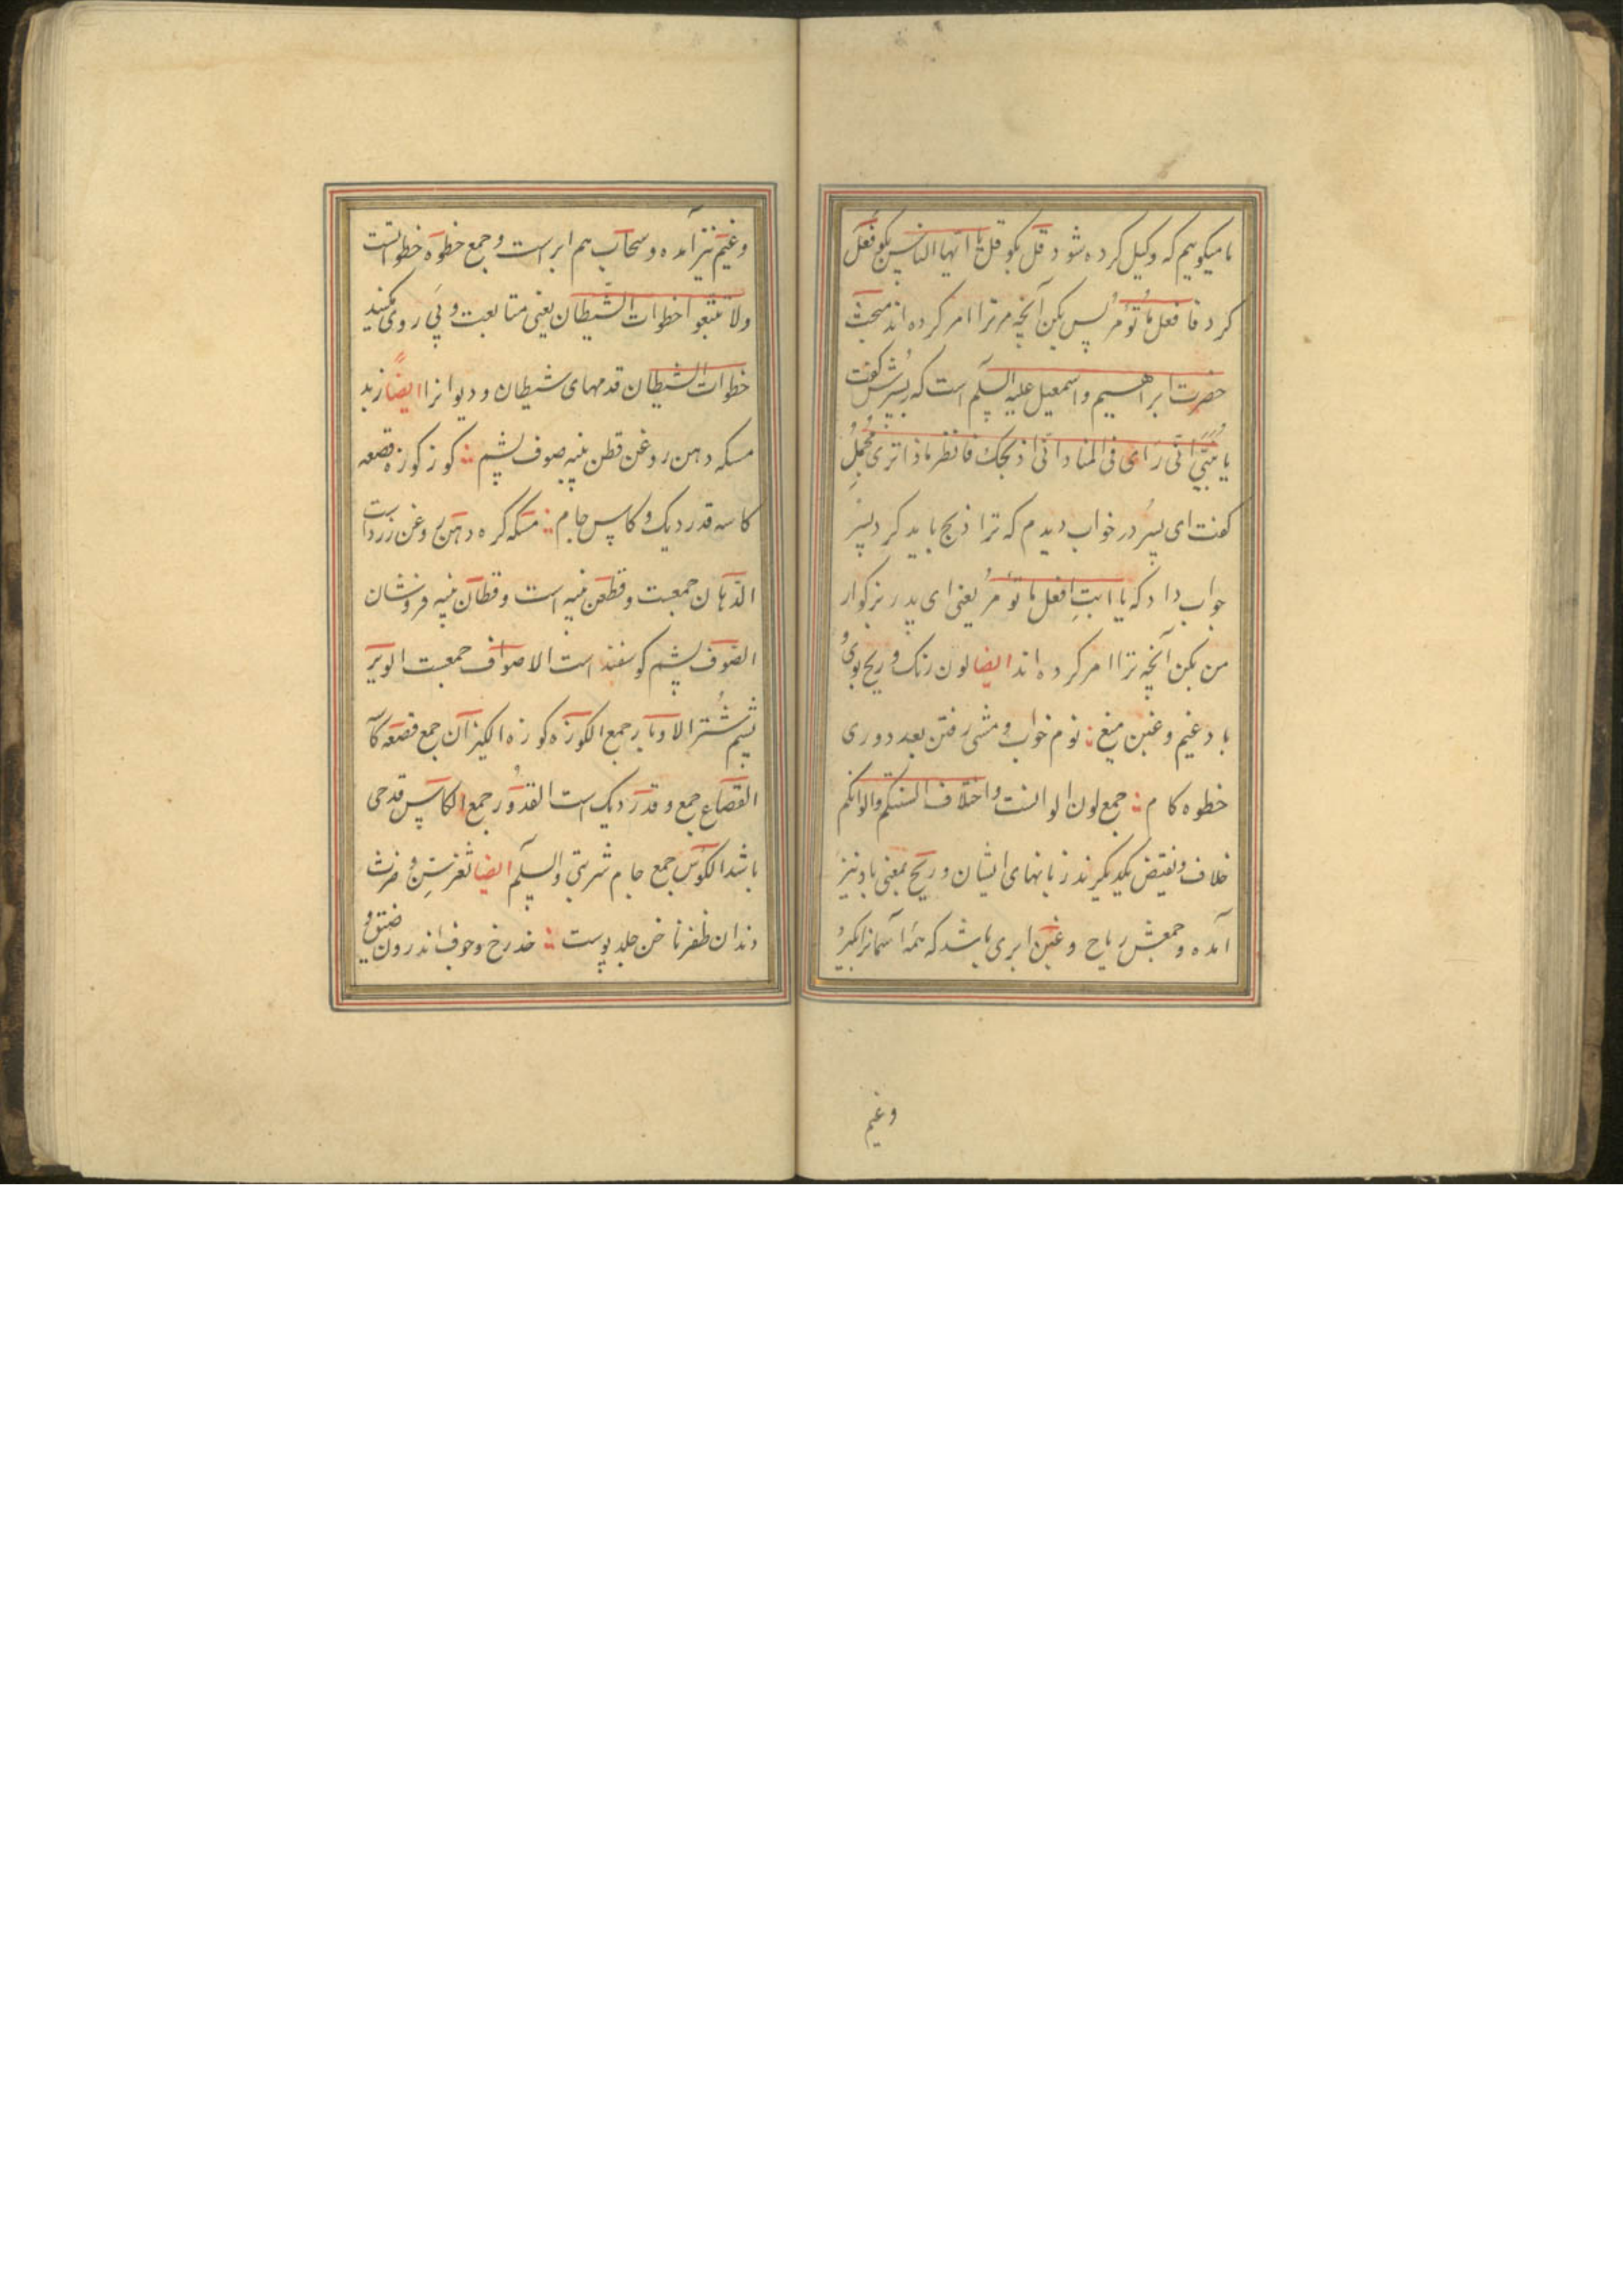 ما میکوییم که وکیل کرده شود قل بکو قل یا ایها الناس بکو فعل
کرد فافعل ما تؤمر پس بکن آنچه مر ترا امر کرده اند مبحث
حضرت ابراهیم واسمعیل علیه السلم است که پسرش کفت
یا بنی انی رای فی المنام انی اذبحک فانظر ماذا تری
کفت ای پسر در خواب دیدم که ترا ذبح باید کرد پسر
جواب داد که یا ابت افعل ما تؤمر یعنی ای پدر بزرکوار
من بکن آنچه ترا امر کرده اند ایضا لون رنک وریح بوی و
باد غیم وغین میغ نوم خواب ومشی رفتن بعد دوری
خطوه کام جمع لون الوانست واختلاف السنتکم والوانکم
خلاف ونقیض یکدیکرند زبانهای ایشان وریح بمعنی باد نیز
آمده وجمعش ریاح وغین ابری باشد که همه آسمانرا بکیرد
وغیم
وغیم نیز آمده وسحاب هم ابر است وجمع خطوه خطواتست
ولا تتبعوا خطوات الشیطان یعنی متابعت وپی روی مکنید
خطوات الشیطان قدمهای شیطان ودیوانرا ایضا زبد
مسکه دهن روغن قطن پنبه صوف پشم کوز کوزه قصعه
کاسه قدر دیک وکاس جام مسکه کره دهن روغن زرد است
الدهان جمعست وقطن پنبه است وقطان پنبه فروشان
الصوف پشم کوسفند است الاصواف جمعست الوبر
پشم شتر الاوبار جمع الکوزه کوزه الکیزان جمع قصعه کاسه
القصاع جمع وقدر دیک است القدور جمع الکاس قدحی
باشد الکوس جمع جام شربتی والسلم ایضا ثغر سن وضرس
دندان ظفر ناخن جلد پوست خد رخ وجوف اندرون